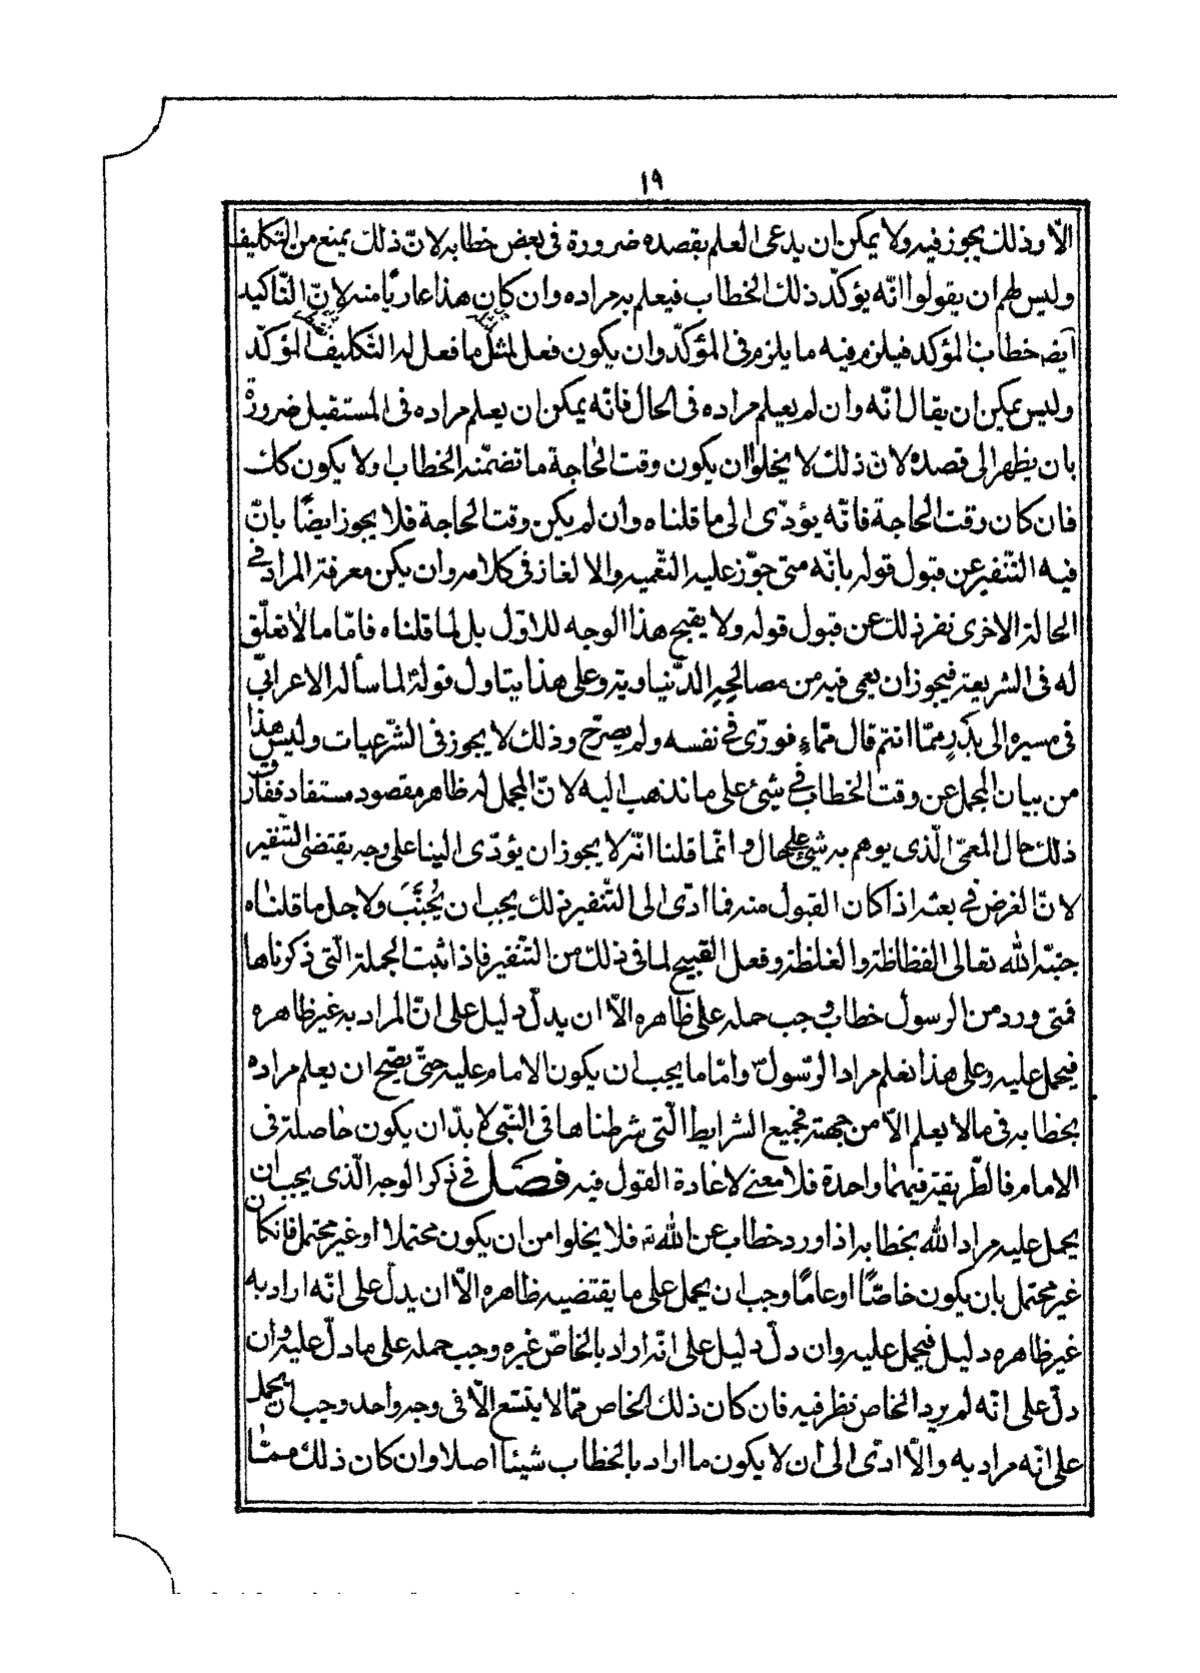 ١٩
الّا وذلك يجوز فيه ولا يمكن ان يدعى العلم بقصده ضرورة فى بعض خطابه لانّ ذلك يمنع من التكليف
وليس لهم ان يقولوا انّه يؤكّد ذلك الخطاب فيعلم به مراده وان كان هذا عاريًا منه لانّ التّاكيد
ايضه خطاب المؤكد فيلزم فيه ما يلزم فى المؤكّد وان يكون فعل لمثل ما فعل له التّكليف المؤكّد
وليس يمكن ان يقال انّه وان لم يعلم مراده فى الحال فانّه يمكن ان يعلم مراده فى المستقبل ضرورة
بان يظهر الى قصده لانّ ذلك لا يخلوا ان يكون وقت الحاجة ما تضمّنه الخطاب او لا يكون كك
فان كان وقت الحاجة فانّه يؤدّى الى ما قلناه وان لم يكن وقت الحاجة فلا يجوز ايضًا بانّ
فيه التّنفير عن قبول قوله بانّه متى جوّز عليه التّعميه والالغاز فى كلامه وان يكن معرفة المراد فى
الحالة الاخرى نفر ذلك عن قبول قوله ولا يقبح هذا الوجه للاوّل بل لما قلناه فامّا ما لا تعلّق
له فى الشريعة فيجوز ان يعمى فيه من مصالحه الدّنياوية وعلى هذا يتاول قوله لما سأله الاعرابىّ
فى مسيره الى بدرٍ ممّا انتم قال ممّاءٍ فورّى فى نفسه ولم يصرّح وذلك لا يجوز فى الشّرعيات وليس هذا
من بيان المجمل عن وقت الخطاب فى شيئ على ما نذهب اليه لانّ المجمل له ظاهر مقصود مستفاد ففارق
ذلك حال المعمّى الّذى يوهم به شيئ على حال و انّما قلنا انّه لا يجوز ان يؤدّى الينا على وجه يقتضى التّنفير
لانّ الغرض فى بعثه اذا كان القبول منه فما ادّى الى التّنفير ذلك يجب ان يُجَنَّبَ ولاجل ما قلناه
جنبّه الله تعالى الفظاظة والغلظة وفعل القبيح لما فى ذلك من التّنفير فاذا ثبت الجملة الّتى ذكرناها
فمتى ورد من الرسول خطاب وجب حمله على ظاهره الّا ان يدلّ دليل على انّ المراد به غير ظاهره
فيحمل عليه وعلى هذا نعلم مراد الرّسول ص وامّا ما يجب ان يكون الامام عليه حتّى يصّح ان يعلم مراده
بخطابه فى ما لا يعلم الّا من جهته فجميع الشرايط الّتى شرطناها فى النّبى لا بدّ ان يكون حاصلة فى
الامام فالطّريقة فيهما واحدة فلا معنى لاعادة القول فيه فصل فى ذكر الوجه الّذى يجب ان
يحمل عليه مراد الله بخطابه اذا ورد خطاب عن الله تع فلا يخلوا من ان يكون محتملا او غير محتمل فان كان
غير محتمل بان يكون خاصًّا او عامًّا وجب ان يحمل على ما يقتضيه ظاهره الّا ان يدلّ على انّه اراد به
غير ظاهره دليل فيحمل عليه وان دلّ دليل على انّه اراد بالخاصّ غيره وجب حمله على ما دلّ عليه وان
دلّ على انّه لم يرد الخاص نظر فيه فان كان ذلك الخاص ممّا لا يتّسع الّا فى وجه واحد وجب ان يحمل
على انّه مراد به والّا ادّى الى ان لا يكون ما اراد بالخطاب شيئًا اصلا وان كان ذلك ممّا